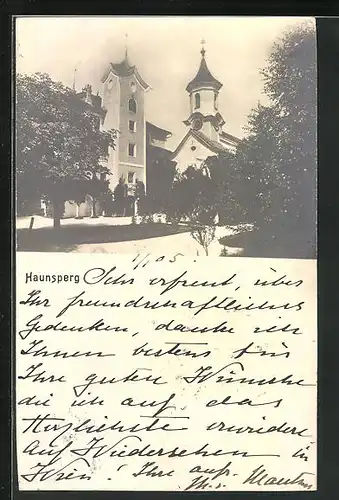 1/1 05.
Haunsperg Sehr erfreut, über
Ihr freundschaftliches
Gedenken, danke ich
Ihnen bestens für
Ihre guten Wünsche
die ich auf das
Herzlichste erwidere
Auf Wiedersehen in
Wien! Ihre aufr.